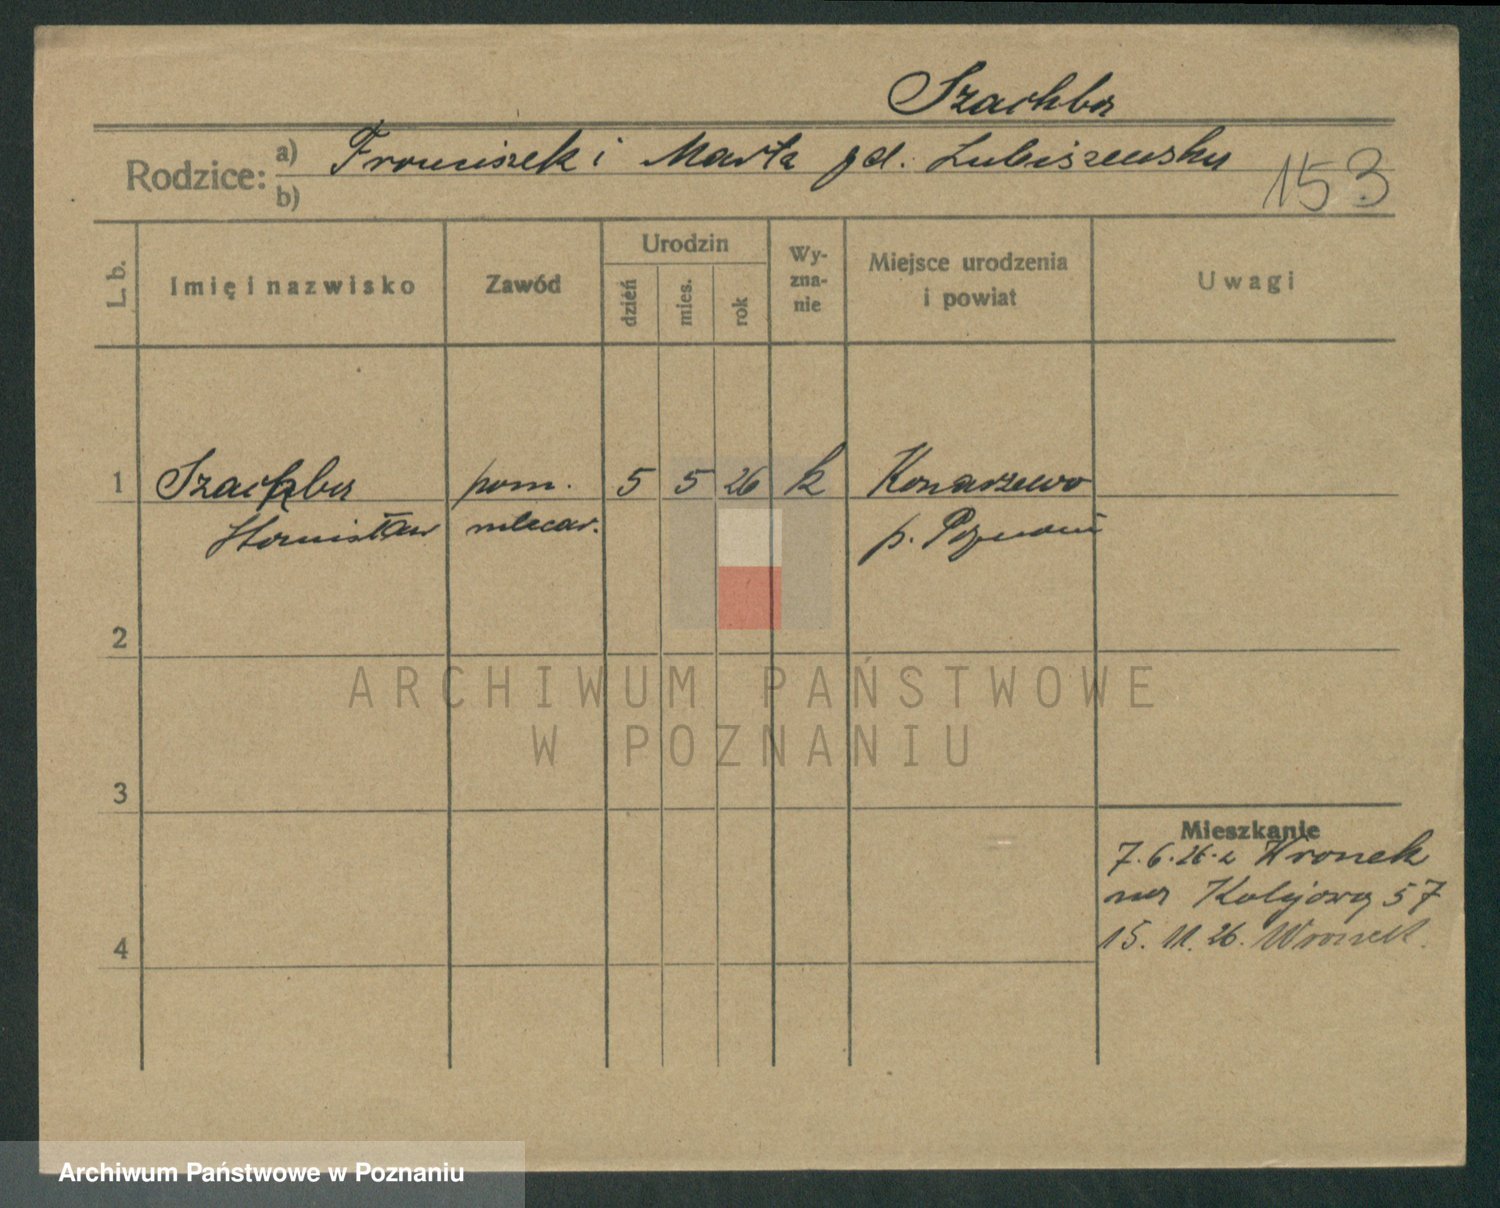 Szachba
Rodzice: a) Franciszek i Marta gd. Lubiszewska
b)
153
L. b.
Imię i nazwisko
Zawód
Urodzin
dzień
mies.
rok
Wy-
zna-
nie
Miejsce urodzenia
i powiat
Uwagi
1 Szachba pom. 5 5 26 k Konarzewo
Stanisław mleczar. p. Poznań
2
3
4
ARCHIWUM PAŃSTWOWE
W POZNANIU
Mieszkanie
7.6.26. z Wronek
na Kolejową 57
15. 11. 26. Wronek.
Archiwum Państwowe w Poznaniu